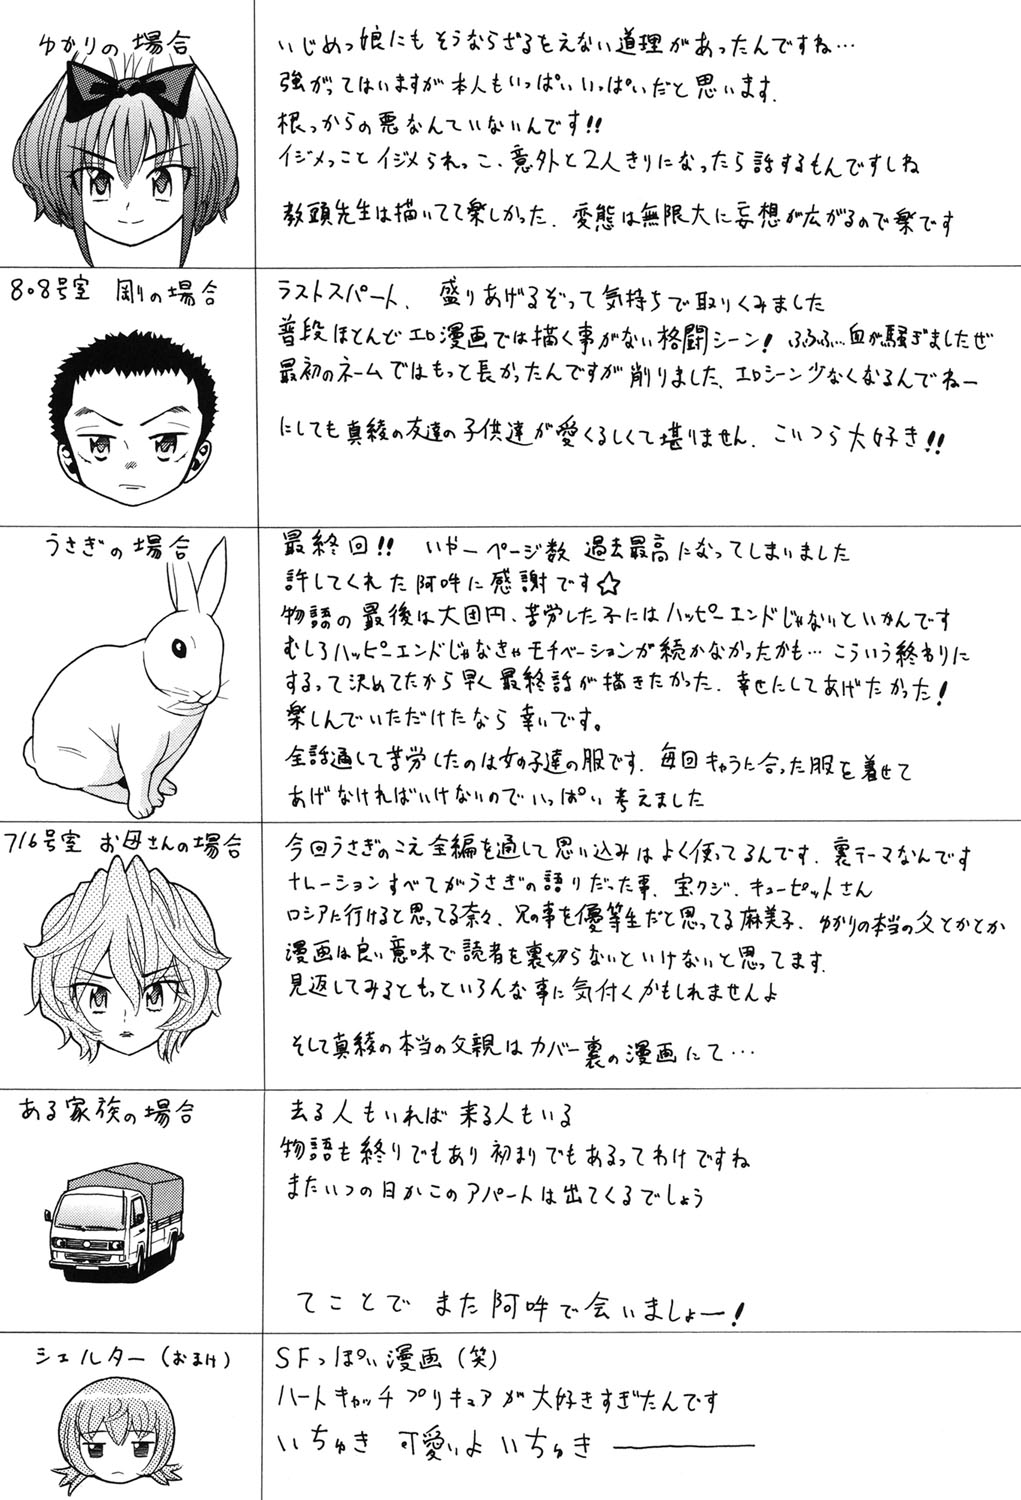 ゆかりの場合
いじめっ娘にもそうならざるをえない道理があったんですね…
強がってはいますが本人もいっぱいいっぱいだと思います.
根っからの悪なんていないんです!!
イジメっことイジメられっこ、意外と2人きりになったら話するもんですしね
教頭先生は描いてて楽しかった. 変態は無限大に妄想が広がるので楽です
808号室 剛の場合
ラストスパート、 盛りあげるぞって気持ちで取りくみました
普段ほとんどエロ漫画では描く事がない格闘シーン! ふふふ…血が騒ぎましたぜ
最初のネームではもっと長かったんですが削りました、エロシーン少なくなるんでねー
にしても真綾の友達の子供達が愛くるしくて堪りません. こいつら大好き!!
うさぎの場合
最終回!! いやーページ数 過去最高になってしまいました
許してくれた阿吽に感謝です☆
物語の最後は大団円、苦労した子にはハッピーエンドじゃないといかんです
むしろハッピーエンドじゃなきゃモチベーションが続かなかったかも… こういう終わりに
するって決めてたから早く最終話が描きたかった. 幸せにしてあげたかった!
楽しんでいただけたなら幸いです。
全話通して苦労したのは女の子達の服です. 毎回キャラに合った服を着せて
あげなければいけないのでいっぱい考えました
716号室 お母さんの場合
今回うさぎのこえ全編を通して思い込みはよく使ってるんです. 裏テーマなんです
ナレーションすべてがうさぎの語りだった事、宝クジ、キューピットさん
ロシアに行けると思ってる奈々、兄の事を優等生だと思ってる麻美子、ゆかりの本当の父とかとか
漫画は良い意味で読者を裏切らないといけないと思ってます.
見返してみるともっといろんな事に気付くかもしれませんよ
そして真綾の本当の父親はカバー裏の漫画にて…
ある家族の場合
去る人もいれば来る人もいる
物語も終りでもあり初まりでもあるってわけですね
またいつの日かこのアパートは出てくるでしょう
てことで また阿吽で会いましょー!
シェルター(おまけ)
SFっぽい漫画(笑)
ハートキャッチプリキュアが大好きすぎたんです
いちゅき 可愛いよ いちゅき ―――